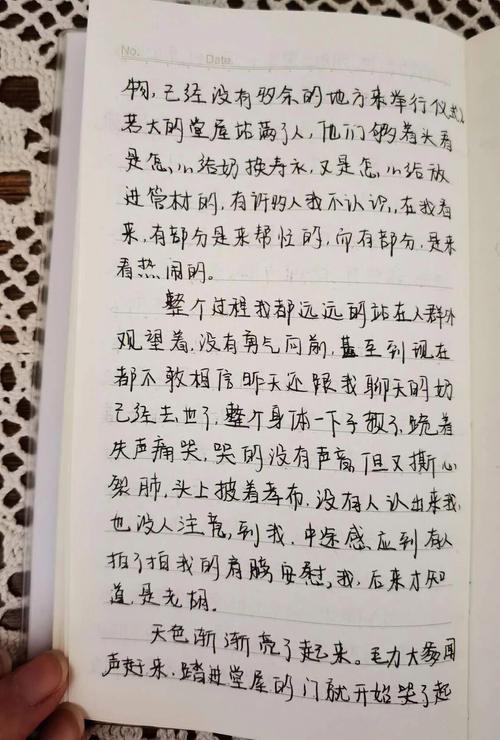 No.
Date
物，已经没有多余的地方来举行仪式。
若大的堂屋站满了人，他们够着头看
是怎么给奶换寿衣，又是怎么给放
进管材的，有许多人我不认识，在我看
来，有部分是来帮忙的，而有部分，是来
看热闹的。
整个过程我都远远的站在人群外
观望着，没有勇气向前，甚至到现在
都不敢相信昨天还跟我聊天的奶
已经去世了，整个身体一下子软了，跪着
失声痛哭，哭的没有声音，但又撕心
裂肺，头上披着孝布，没有人认出来我，
也没人注意到我，中途感应到有人
拍了拍我的肩膀安慰我，后来才知
道，是老胡。
天色渐渐亮了起来。毛力大爹闻
声赶来，踏进堂屋的门就开始哭了起